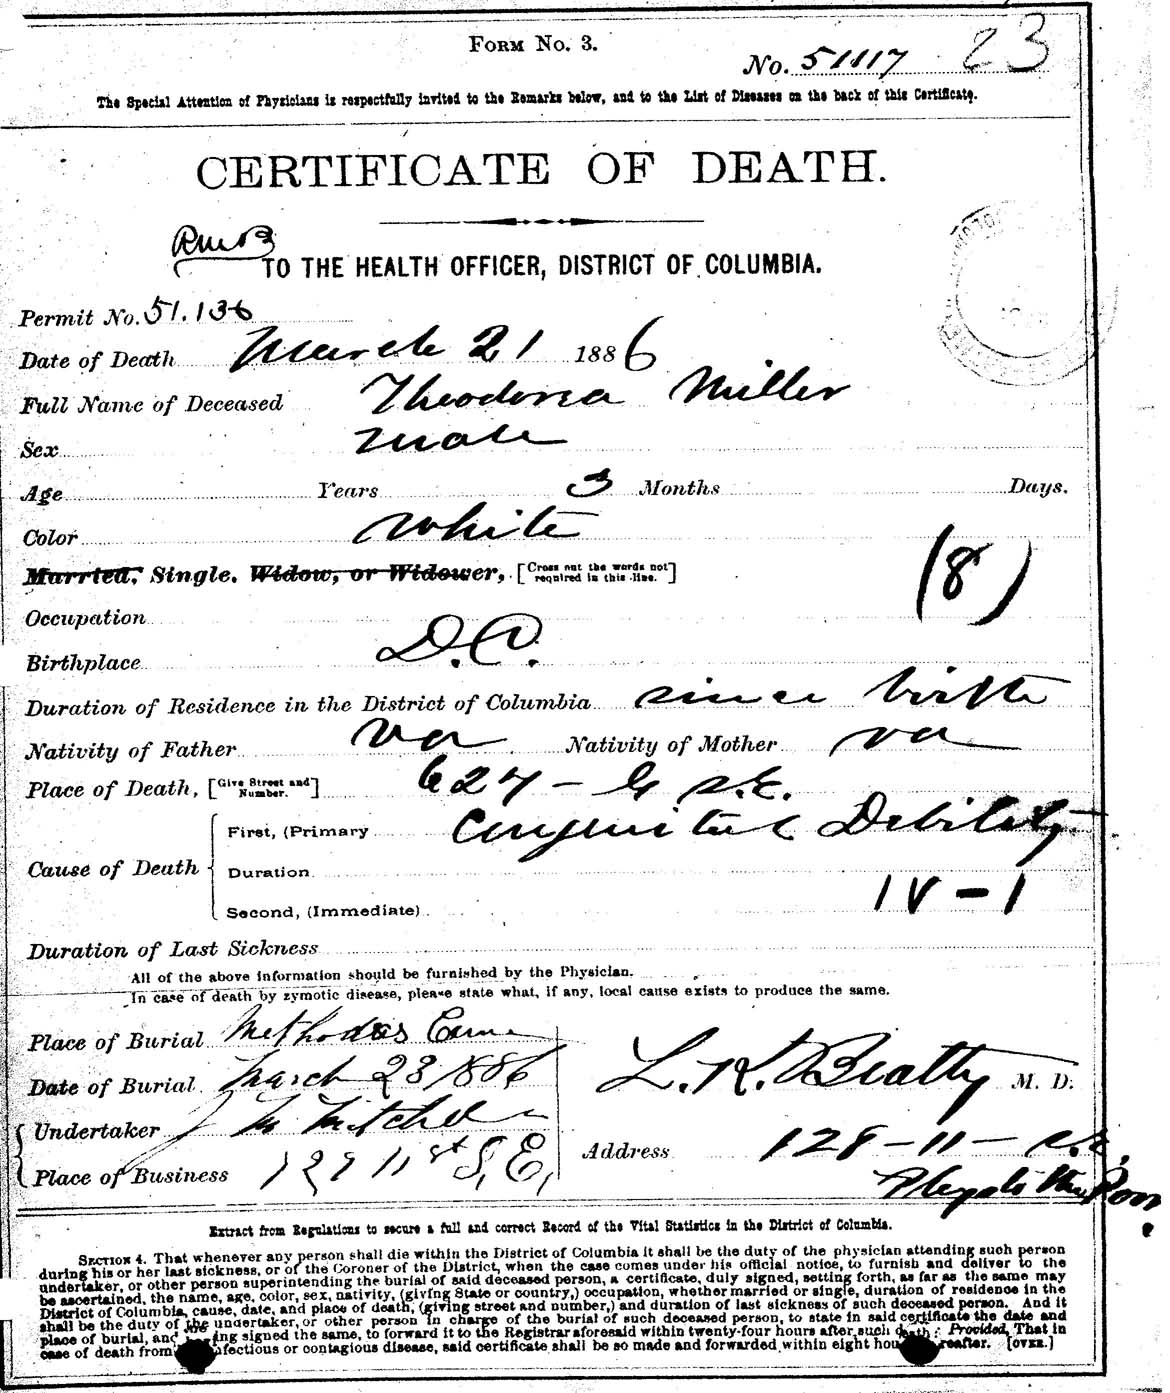 FORM NO. 3.
No. 51117 23
The Special Attention of Physicians is respectfully invited to the Remarks below, and to the List of Diseases on the back of this Certificate.
CERTIFICATE OF DEATH.
TO THE HEALTH OFFICER, DISTRICT OF COLUMBIA.
Permit No. 51.136
Date of Death March 21 1886
Full Name of Deceased Theodorea Miller
Sex Male
Age Years 3 Months Days.
Color White
Married, Single, Widow, or Widower, [Cross out the words not required in this line.]
(8)
Occupation
Birthplace D.C.
Duration of Residence in the District of Columbia since birth
Nativity of Father Va Nativity of Mother Va
Place of Death, [Give Street and Number.] 627 - G s.e.
Cause of Death
First, (Primary Congenital Debility
Duration
Second, (Immediate) IV-1
Duration of Last Sickness
All of the above information should be furnished by the Physician.
In case of death by zymotic disease, please state what, if any, local cause exists to produce the same.
Place of Burial Methodis Cem
Date of Burial March 23 1886
L. K. Beatty M. D.
Undertaker J M Mitchel
Address 128 - 11 - s.e.
Place of Business 129 11 st S.E.
Extract from Regulations to secure a full and correct Record of the Vital Statistics in the District of Columbia.
SECTION 4. That whenever any person shall die within the District of Columbia it shall be the duty of the physician attending such person
during his or her last sickness, or of the Coroner of the District, when the case comes under his official notice, to furnish and deliver to the
undertaker, or other person superintending the burial of said deceased person, a certificate, duly signed, setting forth, as far as the same may
be ascertained, the name, age, color, sex, nativity, (giving State or country,) occupation, whether married or single, duration of residence in the
District of Columbia, cause, date, and place of death, (giving street and number,) and duration of last sickness of such deceased person. And it
shall be the duty of the undertaker, or other person in charge of the burial of such deceased person, to state in said certificate the date and
place of burial, and having signed the same, to forward it to the Registrar aforesaid within twenty-four hours after such death: Provided, That in
case of death from infectious or contagious disease, said certificate shall be so made and forwarded within eight hours thereafter. [OVER.]